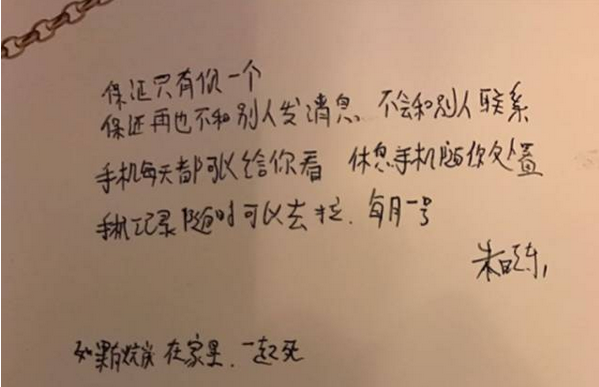 保证只有你一个
保证再也不和别人发消息 不会和别人联系
手机每天都可以给你看 休息手机随你处置
手机记录随时可以去拉.每月一号
如果 在家里.一起死